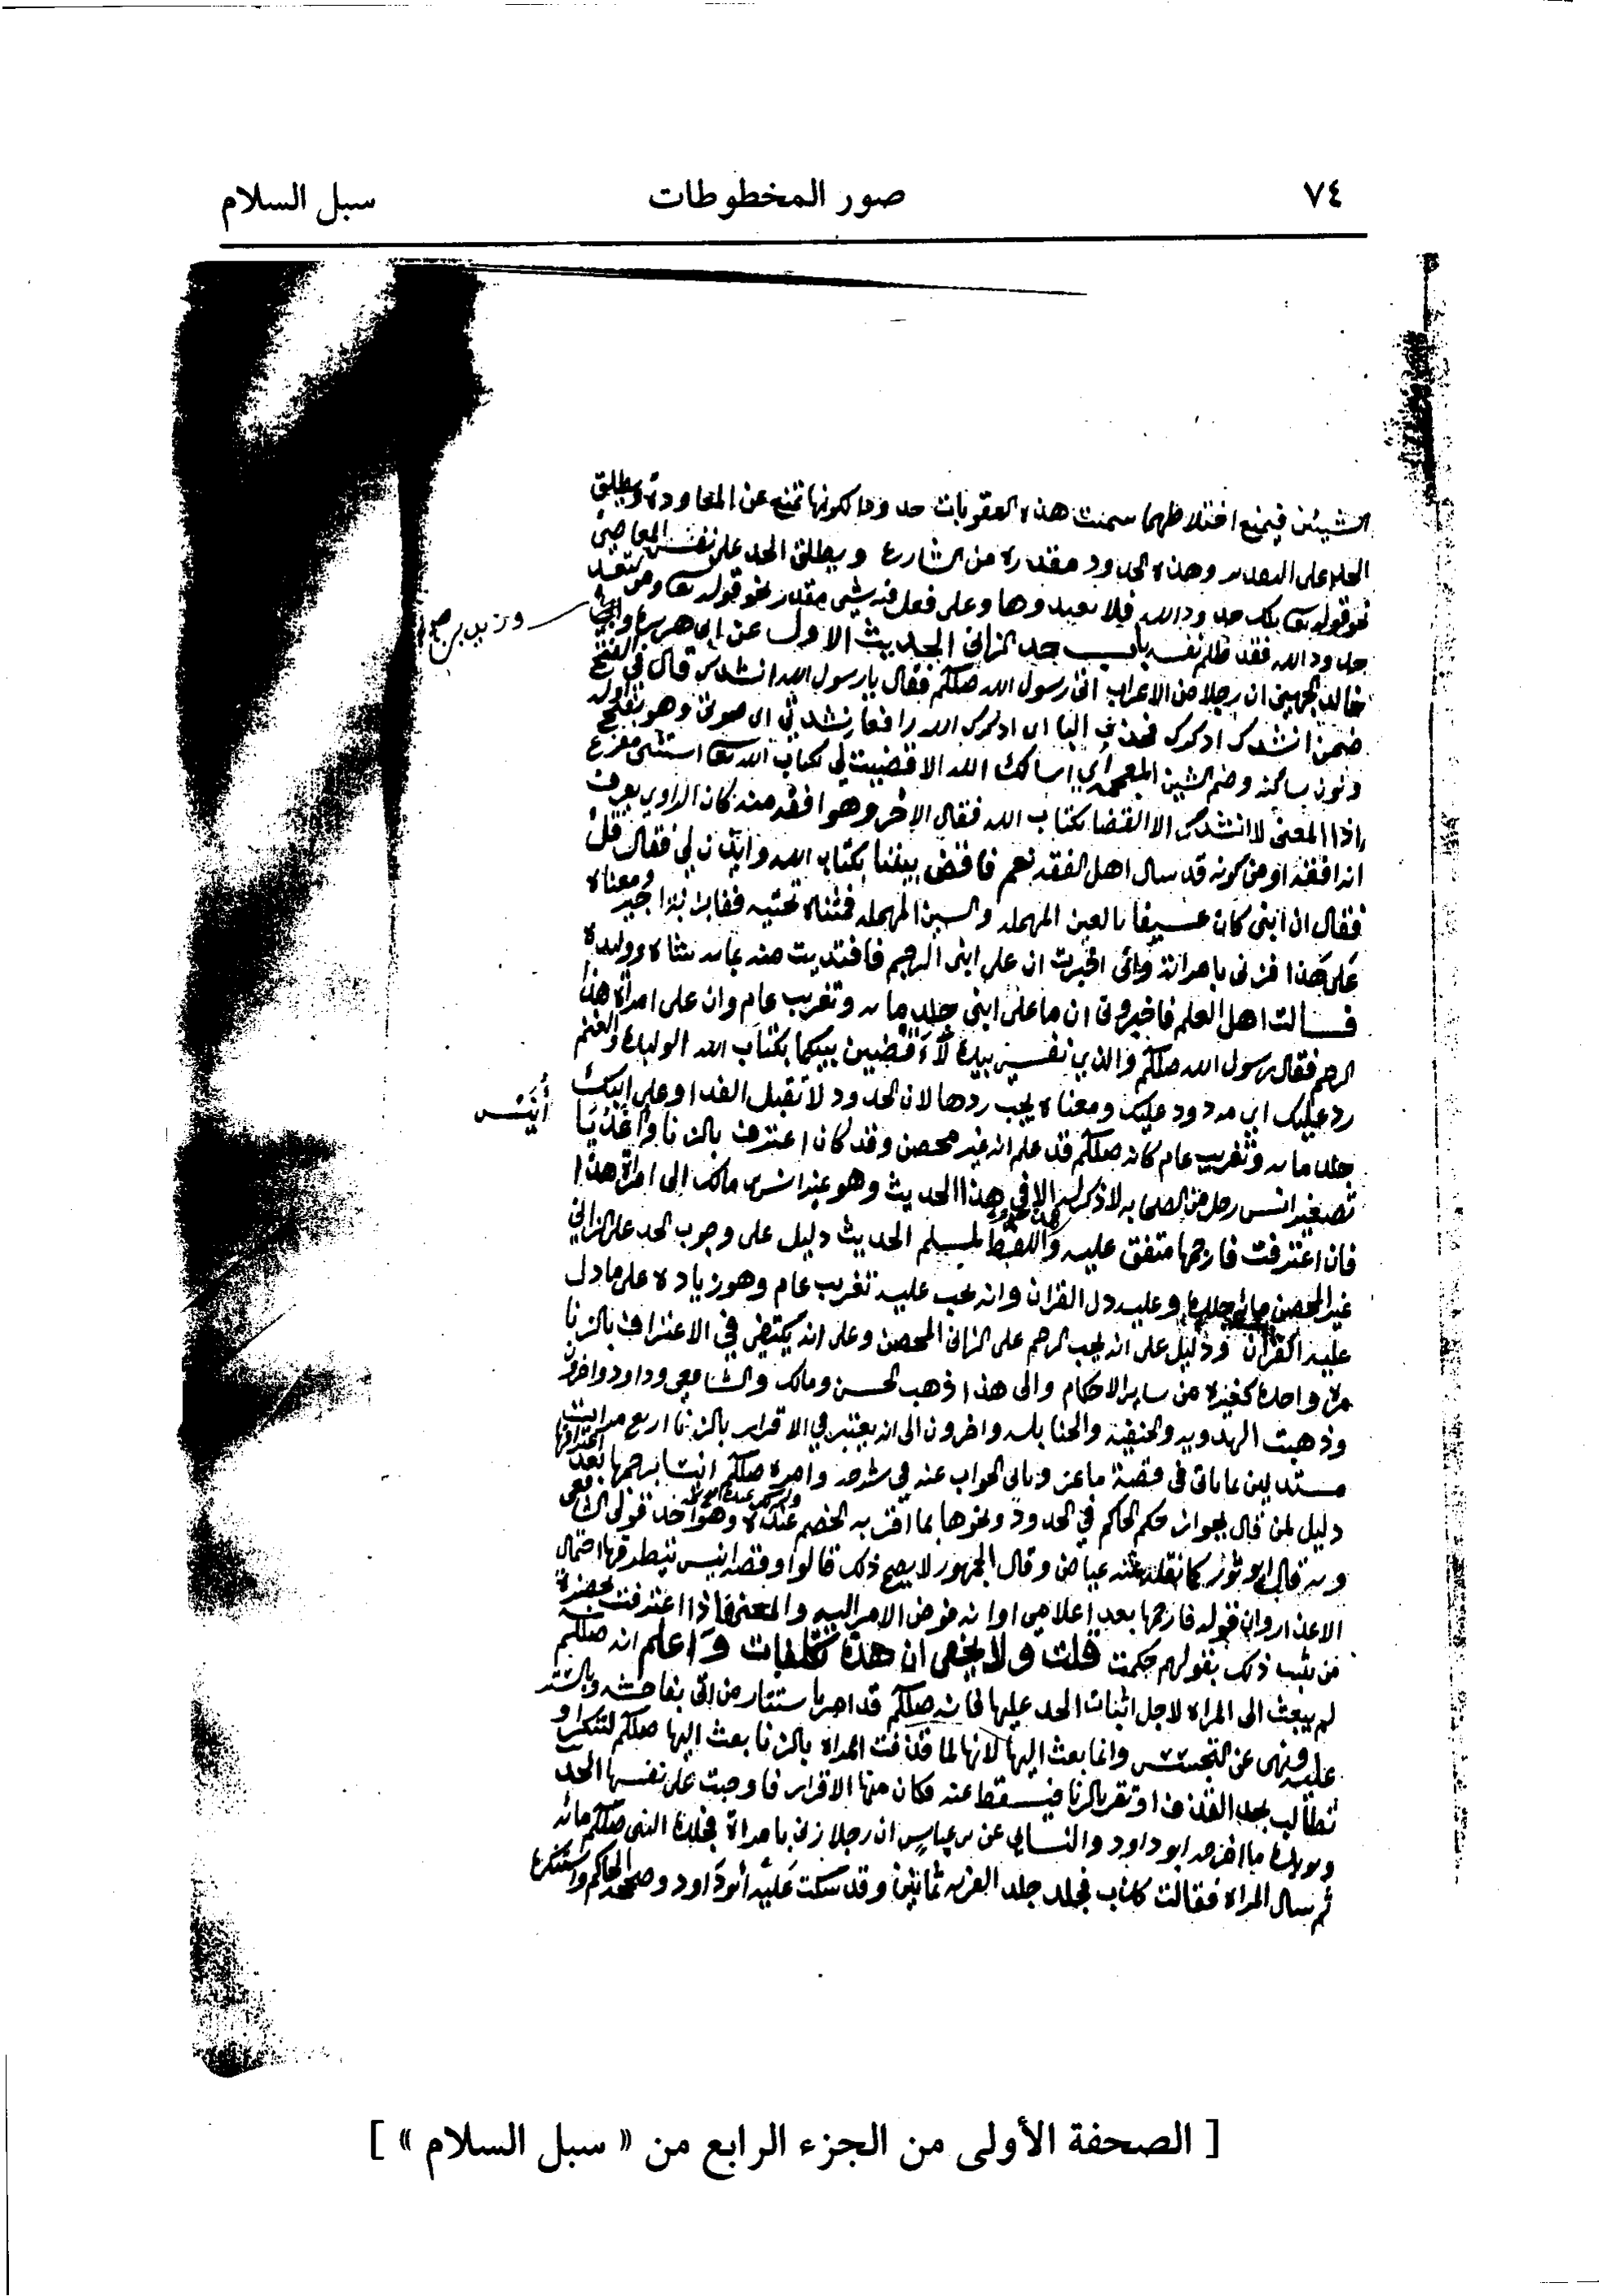 ٧٤ صور المخطوطات سبل السلام
الشيئين فيمنع اختلاطهما سميت هذه العقوبات حدودا لكونها تمنع عن المعاودة ويطلق
الحد على التقدير وهذه الحدود مقدرة من الشارع ويطلق الحد على نفس المعاصي
نحو قوله تعا تلك حدود الله فلا تعتدوها وعلى فعل فيه شي مقدر نحو قوله تعا ومن يتعد
حدود الله فقد ظلم نفسه باب حد الزاني الحديث الاول عن ابي هريرة
وزيد بن
خالد الجهني ان رجلا من الاعراب اتى رسول الله صللم فقال يارسول الله انشدك قال في الفتح
ضمن انشدك اذكرك فحذف البا اي اذكرك الله رافعا نشدتي اي صوتي وهو بفتح اوله
ونون ساكنة وضم الشين المعجمة اي اسالك الله الا قضيت لي بكتاب الله تعا استثنى مفرغ
اذا المعنى لا انشدك الا القضا بكتاب الله فقال الاخر وهو افقه منه كان الراوي يعرف
انه افقه او من كونه قد سال اهل الفقه نعم فاقض بيننا بكتاب الله وايذن لي فقال قل
فقال ان ابني كان عسيفا بالعين المهملة والسين المهملة فمثناة تحتيه ففا
على هذا فزنى بامراته واني اخبرت ان على ابني الرجم فافتديت منه بماية شاة ووليدة
فسالت اهل العلم فاخبروني ان ما على ابني جلد ماية وتغريب عام وان على امراة هذا
الرجم فقال رسول الله صللم والذي نفسي بيده لاقضين بينكما بكتاب الله الوليدة والغنم
رد عليك اي مردود عليك ومعناه يجب ردها لان الحدود لا تقبل الفدا وعلى ابنك
جلد ماية وتغريب عام كانه صللم قد علم انه غير محصن وقد كان اعترف بالزنا واغد يا
أُنَيْس
تصغير انس رجل من الصحابه لا ذكر له الا في هذا الحديث وهو غير انس بن مالك الى امراة هذا
فان اعترفت فارجمها متفق عليه واللفظ لمسلم الحديث دليل على وجوب الحد على الزاني
غير المحصن ماية جلدة وعليه دل القران وانه يجب عليه تغريب عام وهو زيادة على ما دل
عليه القران ودليل على انه يجب الرجم على الزاني المحصن وعلى انه يكتفى في الاعتراف بالزنا
مرة واحدة كغيره من ساير الاحكام والى هذا ذهب الحسن ومالك والشافعي وداود واخرون
وذهبت الهدويه والحنفية والحنابله واخرون الى انه يعتبر في الاقرار بالزنا اربع مرات
مستدلين بما ياتي في قصة ماعز وياتي الجواب عنه في شرحه وامره صللم انيسا برجمها بعد اعترافها
دليل لمن قال بجواز حكم الحاكم في الحدود ونحوها بما اقر به الخصم عنده وهو احد قولي الشافعي
وبه قال ابو ثور كما نقله عنه عياض وقال الجمهور لا يصح ذلك قالوا وقصة انيس يتطرقها احتمال
الاعذار وان قوله فارجمها بعد اعلامي او انه فوض الامر اليه والمعنى فاذا اعترفت بحضرة
من يثبت ذلك بقولهم حكمت قلت ولا يخفى ان هذه تكلفات واعلم انه صللم
لم يبعث الى المراة لاجل اثبات الحد عليها فانه صللم قد امر باستتار من اتى بفاحشة وبالستر
عليه ونهى عن التجسس وانما بعث اليها لانها لما قذفت المراة بالزنا بعث اليها صللم لتنكر او
تطالب بحد القذف او تقر بالزنا فيسقط عنه فكان منها الاقرار فاوجبت على نفسها الحد
ويويده ما اخرجه ابو داود والنسائي عن بن عباس ان رجلا زنى بامراة فجلده النبي صللم مائه
ثم سال المراة فقالت كذب فجلد جلد الفريه ثمانين وقد سكت عليه أبو داود وصححه الحاكم واستنكره
[ الصحفة الأولى من الجزء الرابع من « سبل السلام » ]